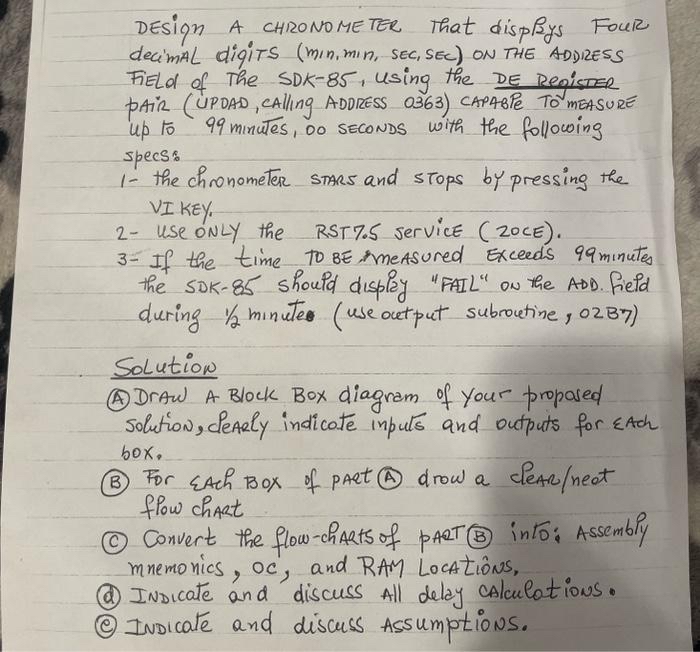 DESign A CHRONOMETER That displays FOUR
decimAL digiTS (min, min, SEC, SEC) ON THE ADDRESS
FiELd of The SDK-85, using the DE REgiSTER
pAiR (UPDAD, CAlling ADDRESS 0363) CAPABlE TO MEASURE
up to 99 minutes, 00 SECONDS with the following
specs:
1- the chronometer STARS and STOPS by pressing the
VI KEY.
2- USE ONLY the RST7.5 SERVICE (20CE).
3- If the time TO BE MEASURED Exceeds 99 minutes
the SDK-85 should display "FAIL" ON the ADD. field
during 1/2 minute (use output subroutine, 02B7)
Solution
(A) DRAW A Block Box diagram of your proposed
solution, clearly indicate inputs and outputs for EAch
box.
(B) For EAch Box of pART (A) drow a cleAR/neat
flow chart
(C) Convert the flow-chARTs of pART (B) into: Assembly
mnemonics, OC, and RAM LOCATIONS,
(d) INDICATE and discuss All delay CALCULATIONS.
(e) INDICATE and discuss Assumptions.